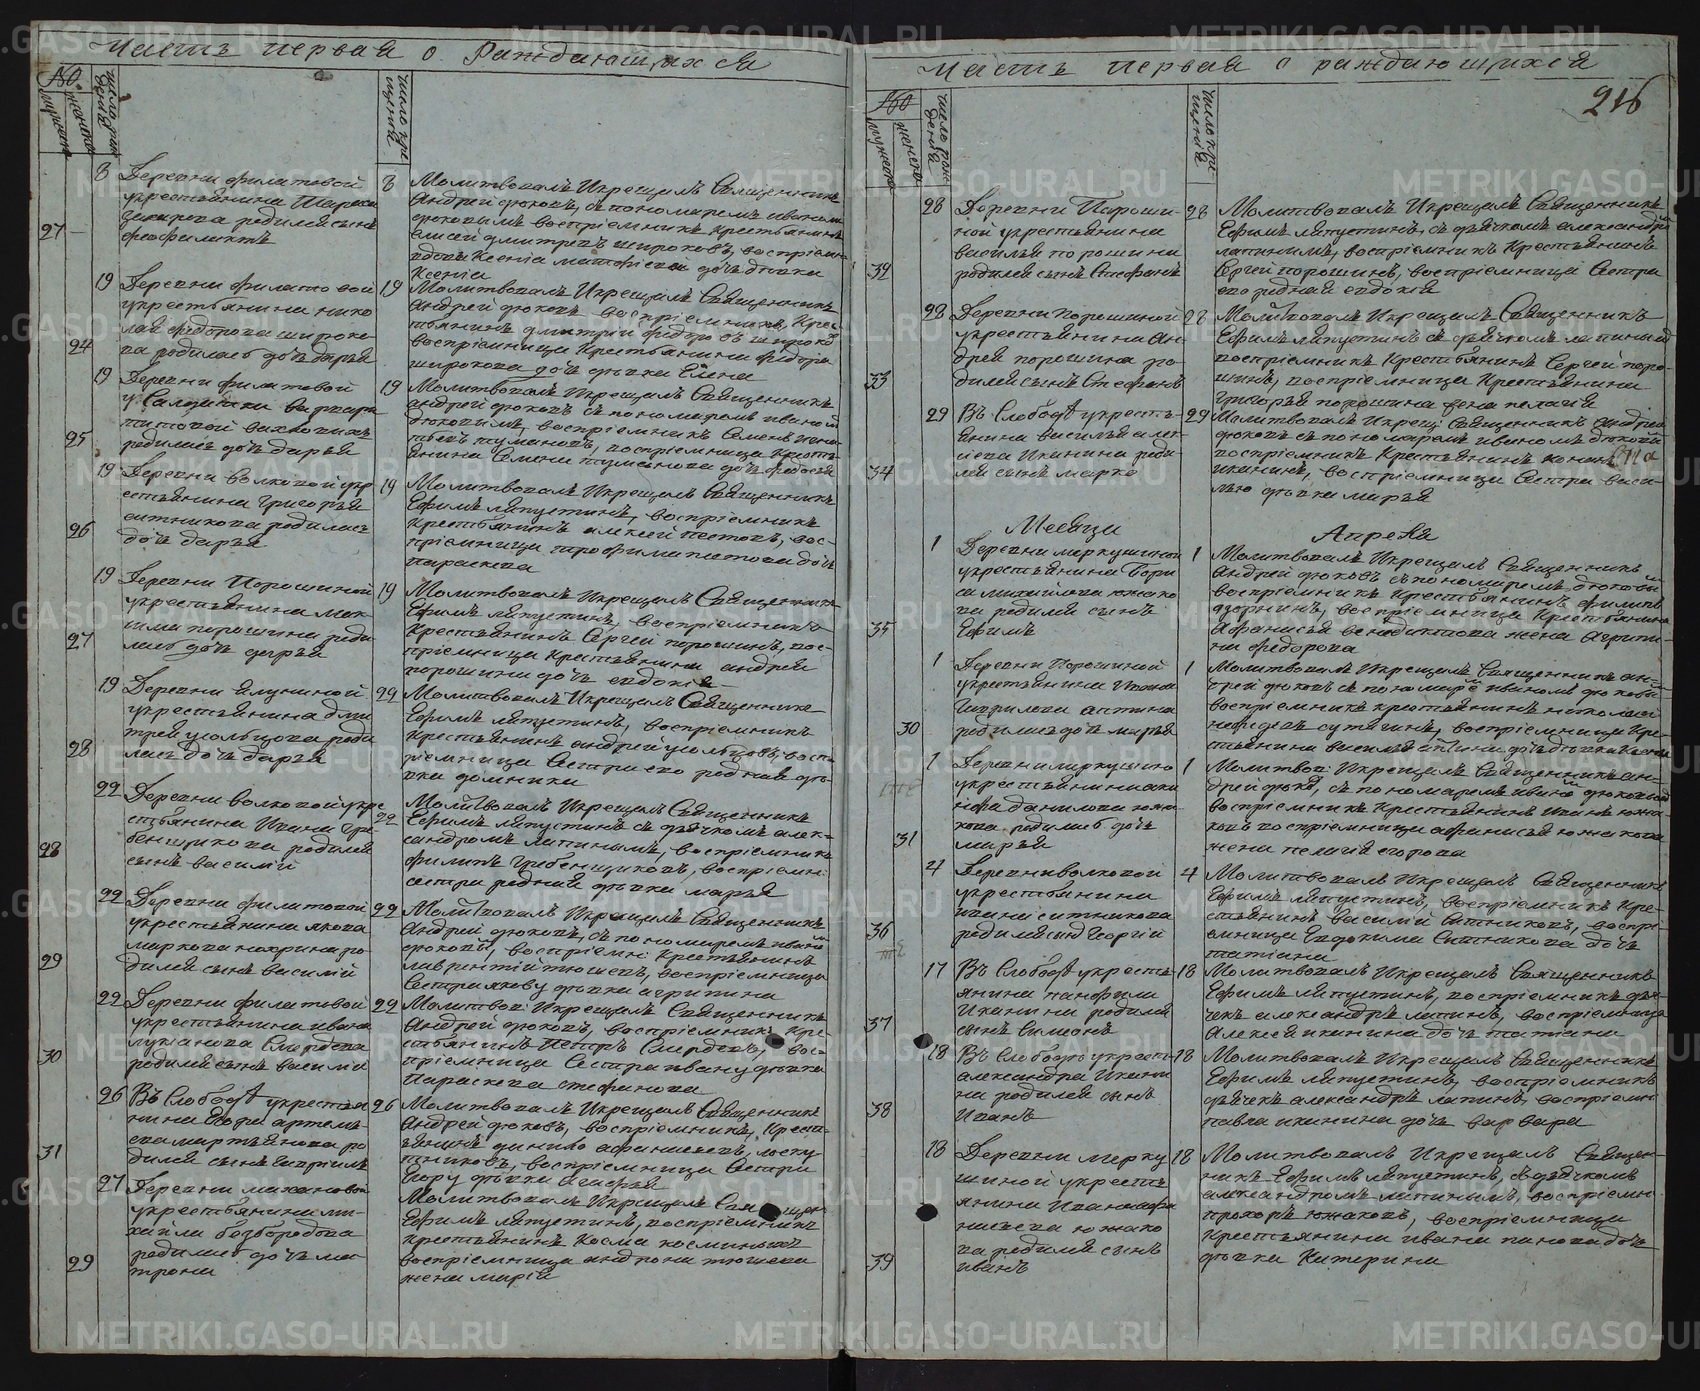 Часть первая о Раждающихся
№
мужеска
женска
число рождения
число крещения
8 Деревни филатовой
у крестьянина
Захарова родился сынъ
27
феофилактъ
8 Молитвовалъ Икрестилъ Священникъ
Андрей дюковъ, съ пономаремъ иваномъ
дюковымъ воспріемникъ крестьянинъ
елисей дмитревъ широковъ, воспріем
Ксенія
19 Деревни филатовой
у крестьянина нико
лая федорова широко
24
ва родилась дочь дарья
19 Молитвовалъ Икрестилъ Священникъ
Андрей дюковъ воспріемникъ, Крес-
тьянинъ дмитрій федоровъ широко
воспріемница Крестьянина федора
широкова дочь девка Елена
19 Деревни филатовой
у Салдатки варвары
титовой
25
родилась дочь дарья
19 Молитвовалъ Икрестилъ Священникъ
андрей дюковъ съ пономаремъ иваномъ
дюковымъ, воспріемникъ Семенъ
тумановъ, воспріемница Кресть
янина Семена туманова дочь федосья
19 Деревни волковой укр
естьянина Григорья
ситникова родилась
26
дочь дарья
19 Молитвовалъ Икрестилъ Священникъ
Ефимъ ляпустинъ, воспріемникъ
Крестьянинъ алексей пестовъ, вос-
пріемница трофима пестова дочь
параскева
19 Деревни Порошиной
укрестьянина мак-
сима порошина роди
27
лась дочь дарья
19 Молитвовалъ Икрестилъ Священникъ
Ефимъ ляпустинъ, воспріемникъ
Крестьянинъ Сергей порошинъ, вос-
пріемница крестьянина андрея
порошина дочь евдокія
19 Деревни ялуниной
укрестьянина дми
трея усольцова роди
28
лась дочь дарья
22 Молитвовалъ Икрестилъ Священникъ
Ефимъ ляпустинъ, воспріемникъ
Крестьянинъ андрей усольцовъ, восп
ріемница Сестра его родная де
вка домника
22 Деревни волковой укре
стьянина Ивана Гре
бенщикова родился
28
сынъ василій
22
Молитвовалъ Икрестилъ Священникъ
Ефимъ ляпустинъ съ дьячкомъ алек-
сандромъ лапинымъ, воспріемникъ
филипъ Гребенщиковъ, воспріемн
сестра родная девка марья
22 Деревни филатовой
укрестьянина якова
маркова нохрина ро-
29
дился сынъ василій
22 Молитвовалъ Икрестилъ Священникъ
Андрей дюковъ, съ пономаремъ иваномъ
дюковы, воспріемн Крестьянинъ
лаврентій тюшевъ, воспріемница
Сестра якову девка агрипина
22 Деревни филатовой
укрестьянина ивана
лукіанова Смердева
30
родился сынъ василій
22 Молитвов Икрестилъ Священникъ
Андрей дюковъ, воспріемникъ Кре
стьянинъ Петръ Смердевъ, вос-
пріемница Сестра ивану девка
Параскева стефанова
26 Въ Слободѣ укрестья
нина Егора артемь-
ева мартьянова ро
31
дился сынъ Гавріилъ
26 Молитвовалъ Икрестилъ Священникъ
Андрей дюковъ, воспріемникъ, Крест
ьянинъ данило афанасьевъ, лоску
тниковъ, воспріемница Сестра
Егору девка
27 Деревни махановой
укрестьянина ми-
хайла безбородова
родилась дочь ма-
29
трона
Молитвовалъ Икрестилъ Священ
Ефимъ ляпустинъ, воспріемникъ
крестьянинъ Косма косминыхъ
воспріемница андрона тюшева
жена марія
Часть первая о раждающихся
216
№
мужеска
женска
число рождения
число крещенія
28 Деревни Пороши-
ной укрестьянина
василья порошина
32
родился сынъ Стефанъ
28 Молитвовалъ Икрестилъ Священникъ
Ефимъ ляпустинъ, съ дьячкомъ александро
лапинымъ, воспріемникъ Крестьянинъ
Сергей порошинъ, воспріемница Сестра
его родная евдокія
28 Деревни Порошиной
укрестьянина Ан-
дрея порошина ро-
33
дился сынъ Стефанъ
28 Молитвовалъ Икрестилъ Священникъ
Ефимъ ляпустинъ съ дьячкомъ лапинымъ
воспріемникъ Крестьянинъ Сергей поро-
шинъ, воспріемница Крестьянина
григорья порошина жена пелагія
29 Въ Слободѣ укресть-
янина василья алек
сіева Иканина роди-
34
лся сынъ марко
29 Молитвовалъ Икрести Священникъ Андрей
дюковъ съ пономаремъ иваномъ дюковы
воспріемникъ Крестьянинъ
иканинъ, воспріемница Сестра васи-
лью девка марья
Месяца Апреля
1 Деревни меркушиной
укрестьянина Бори
са михайлова южако
ва родился сынъ
35
Ефимъ
1 Молитвовалъ Икрестилъ Священникъ
Андрей дюковъ съ пономаремъ дюковы
воспріемникъ Крестьянинъ филипъ
воспріемница Крестьянина
Афанасья венедиктова жена агрипи-
на федорова
1 Деревни Порошиной
укрестьянина Ивана
Гаврилова аптина
30
родилась дочь марья
1 Молитвовалъ Икрестилъ Священникъ ан-
дрей дюковъ съ пономаре иваномъ дюковы
воспріемникъ крестьянинъ николай
нефедевъ сутягинъ, воспріемница Кре-
стьянина василья аптина дочь девка
1 Деревни меркушино
укрестьянина
данилова южа-
кова родилась дочь
31
марья
1 Молитвов Икрестилъ Священникъ ан-
дрей дюко, съ пономаремъ ивано дюковымъ
воспріемникъ Крестьянинъ Иванъ южа-
ковъ воспріемница афанасья южакова
жена пелагія егорова
4 Деревни волковой
укрестьянина
ивана ситникова
36
родился сынъ Георгій
4 Молитвовалъ Икрестилъ Священникъ
Ефимъ ляпустинъ, воспріемникъ Кре-
стьянинъ Василій Ситниковъ, воспрі-
емница Евдокима Ситникова дочь
татіана
17 Въ Слободѣ укресть-
янина панфила
Иканина родился
37
сынъ Симеонъ
18 Молитвовалъ Икрестилъ Священникъ
Ефимъ ляпустинъ, воспріемникъ дья-
чекъ александръ лапинъ, воспріемница
Алексея иканина дочь татіана
18 Въ Слободѣ укресть
александра Икани
на родился сынъ
38
Иванъ
18 Молитвовалъ Икрестилъ Священникъ
Ефимъ ляпустинъ, воспріемникъ
дьячекъ александръ лапинъ, воспріемн
павла иканина дочь варвара
18 Деревни мерку
шиной укресть
янина Ивана афа
насьева южако
ва родился сынъ
39
иванъ
18 Молитвовалъ Икрестилъ Священ-
никъ Ефимъ ляпустинъ, съ дьячкомъ
александромъ лапинымъ, воспріемн
прохоръ южаковъ, воспріемница
крестьянина ивана панова дочь
девка Катерина
METRIKI.GASO-URAL.RU